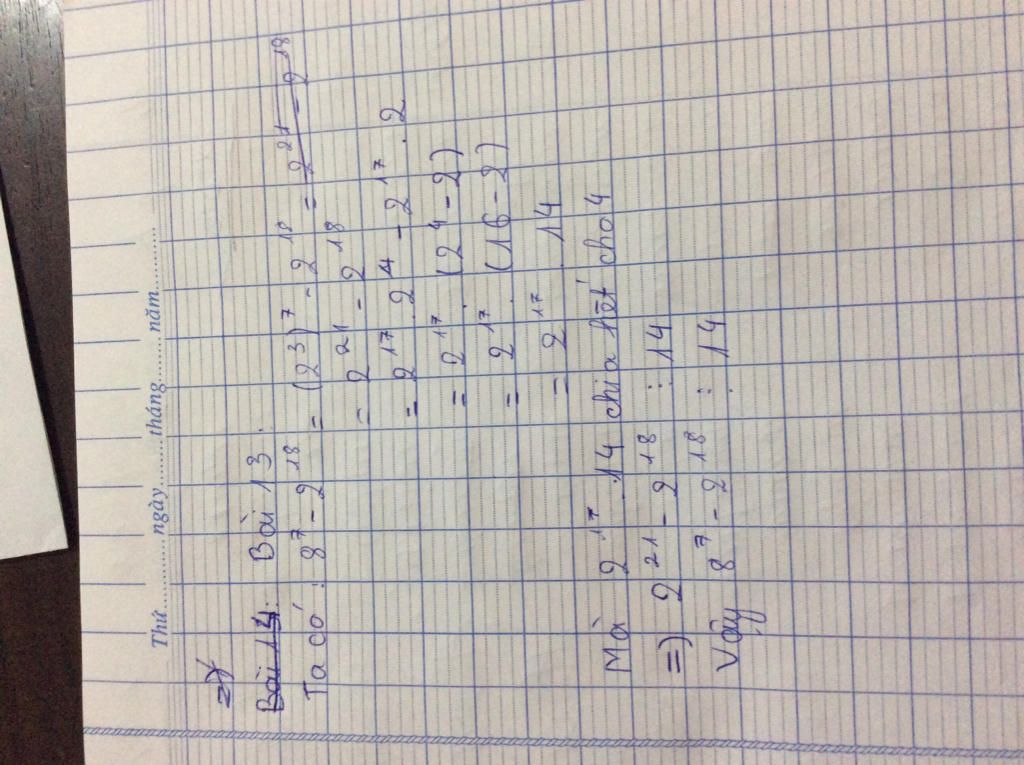 Thứ............ngày............tháng............năm............
=>
Bài 14: Bài 13:
Ta có : 8⁷ - 2¹⁸ = (2³)⁷ - 2¹⁸ = 2²¹ - 2¹⁸
= 2²¹ - 2¹⁸
= 2¹⁷ . 2⁴ - 2¹⁷ . 2
= 2¹⁷ . (2⁴ - 2)
= 2¹⁷ . (16 - 2)
= 2¹⁷ . 14
Mà 2¹⁷ . 14 chia hết cho 4
=) 2²¹ - 2¹⁸ ⋮ 14
Vậy 8⁷ - 2¹⁸ ⋮ 14